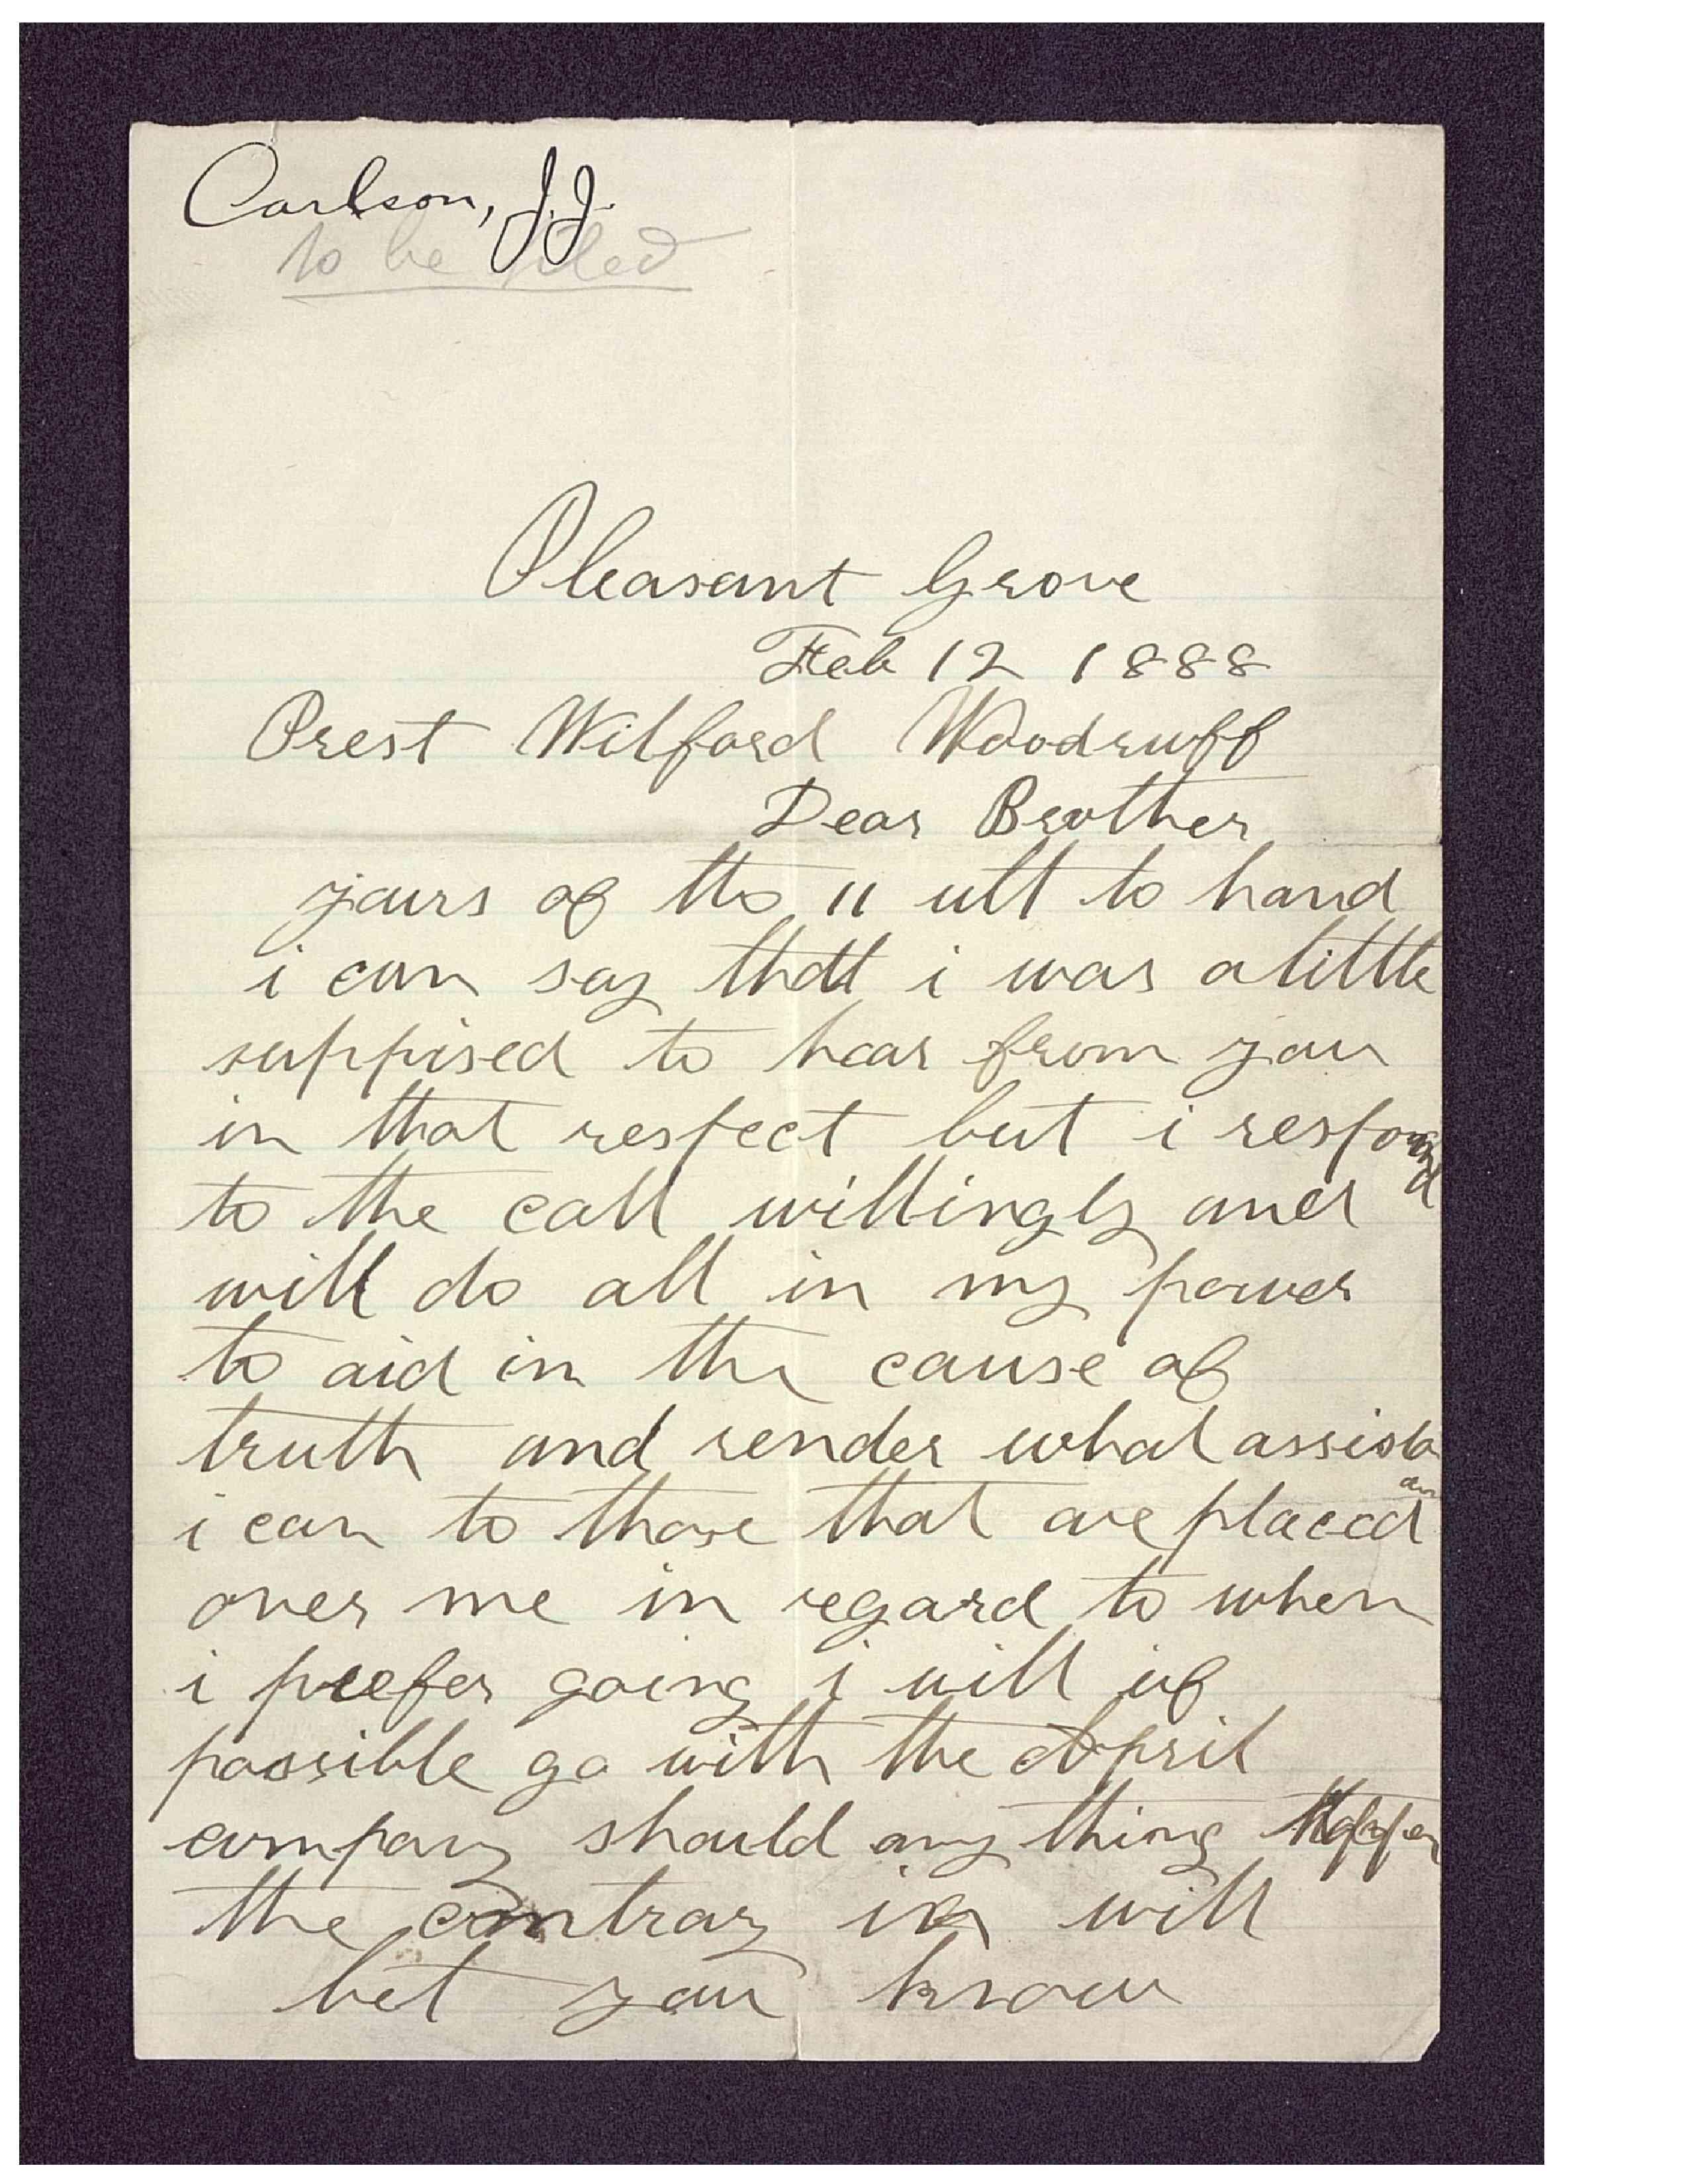 Carlson, J.J.
to be filed
Pleasant Grove
Feb 12 1888
Prest Wilford Woodruff
Dear Brother
yours of the 11 ult to hand
i can say that i was a little
suppised to hear from you
in that respect but i respond
to the call willingly and
will do all in my power
to aid in the cause of
truth and render what assistan
i can to those that are placed
over me in regard to when
i preefer going i will if
possible go with the April
company should any thing happen
the contray i will
let you know